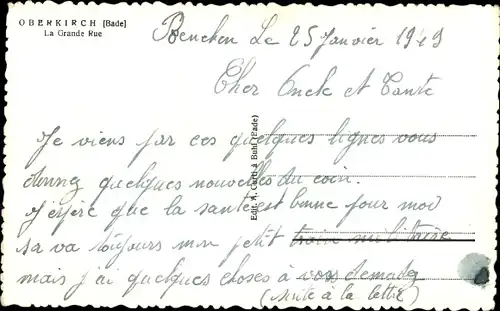 OBERKIRCH [Bade]
La Grande Rue
Le 25 Janvier 1949
Cher Oncle et Tante
Je viens par ces quelques lignes vous
donnez quelques nouvelles du coin.
J'espère que la santé est bonne pour moi
sa va toujours mon petit train militaire
mais j'ai quelques choses à vous demadez
(suite à la lettre)
Edit. à Buhl (Bade)